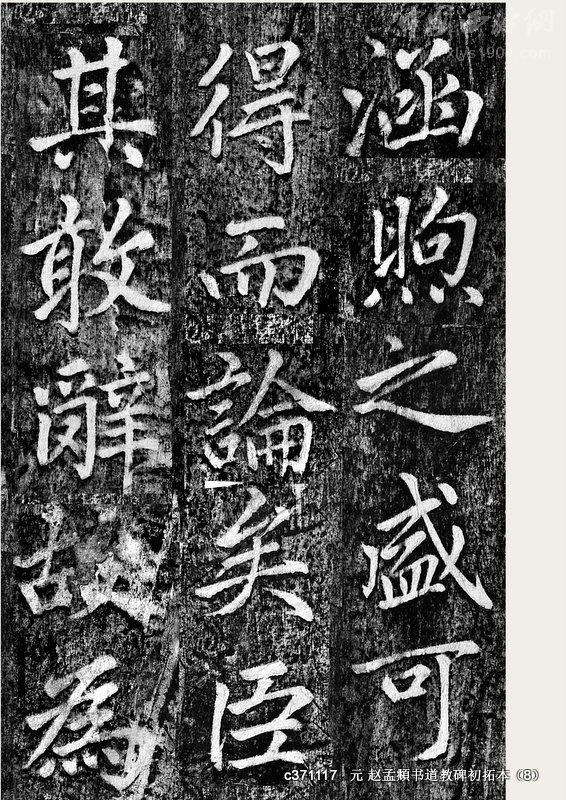 涵煦之盛可
得而論矣臣
其敢辭故為
c371117 元 赵孟頫书道教碑初拓本（8）